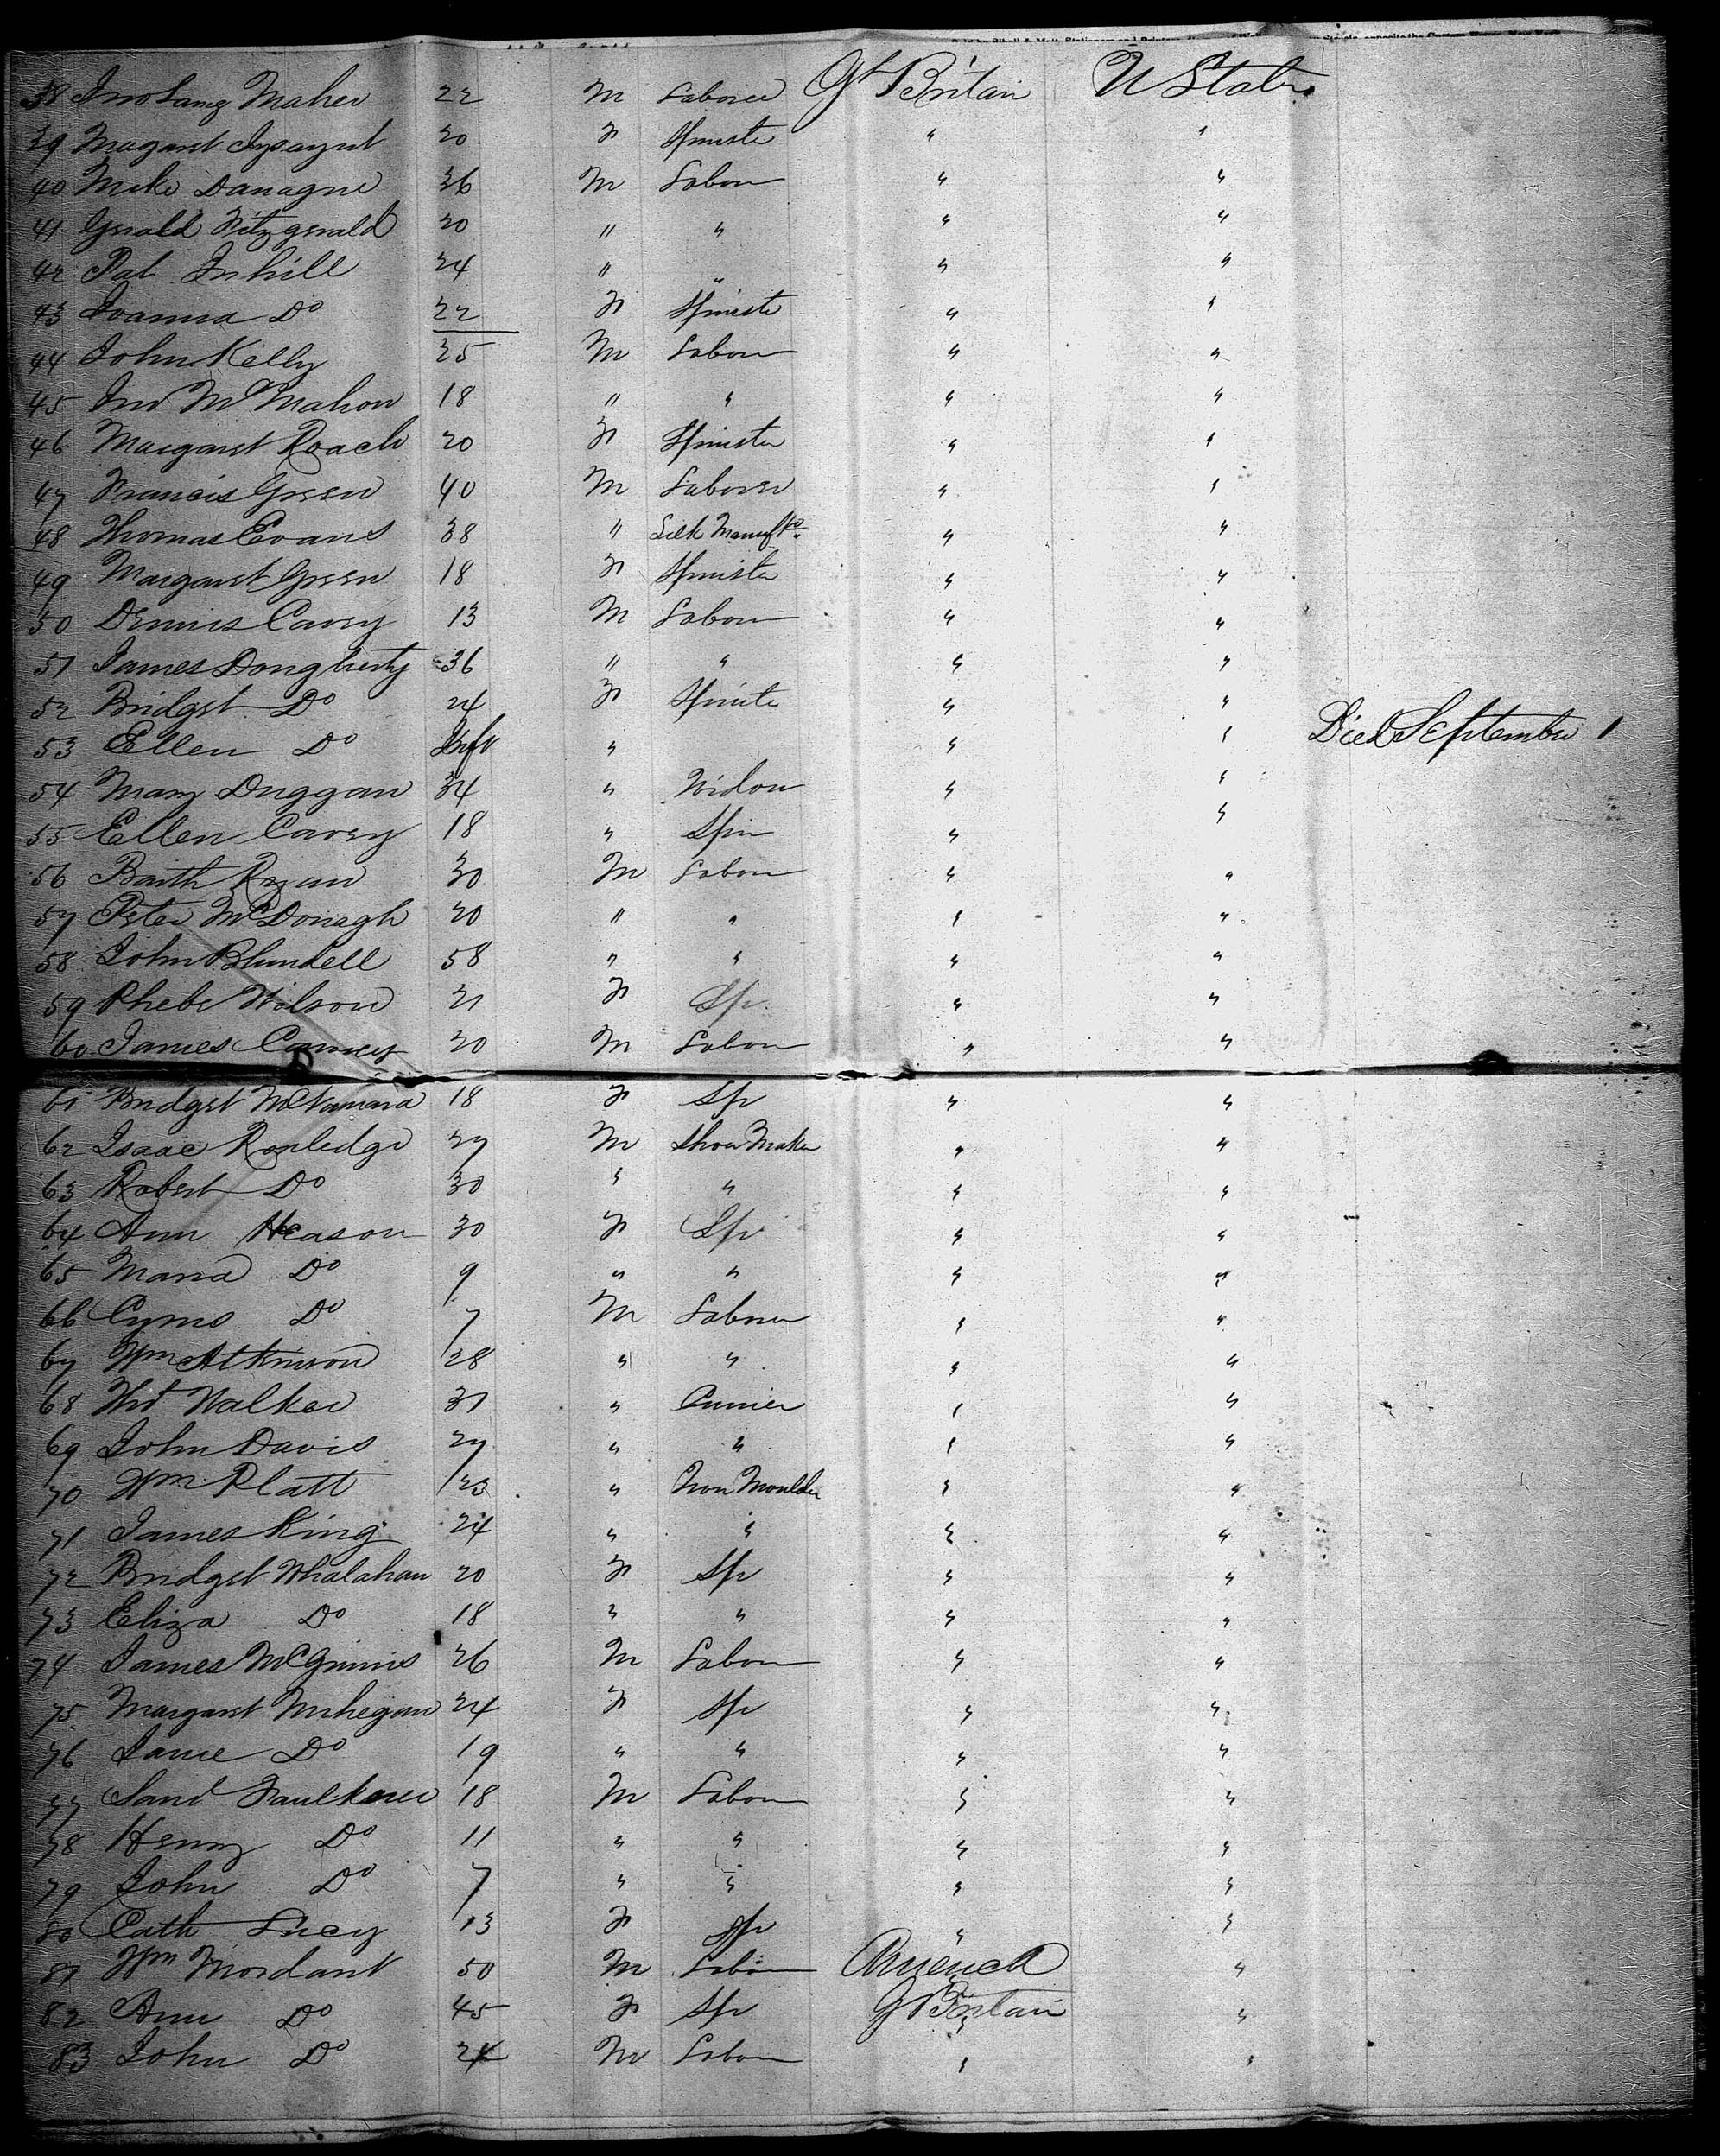 38 Maher 22 M Laborer Gt Britain U States
39 20 F Spinste " "
40 Mike Danagne 36 M Labour " "
41 Gerald Fitzgerald 20 " " " "
42 Pat Inhill 24 " " " "
43 Joanna Do 22 F Spinste " "
44 John Kelly 25 M Labour " "
45 Jno McMahon 18 " " " "
46 Margaret Roach 20 F Spinster " "
47 Francis Green 40 M Laborer " "
48 Thomas Evans 38 " Silk " "
49 Margaret Green 18 F Spinster " "
50 Dennis Carey 13 M Labour " "
51 James Dougherty 36 " " " "
52 Bridget Do 24 F Spinste " "
53 Ellen Do Inft " " " Died September 1
54 Mary Duggan 34 " Widow " "
55 Ellen Carey 18 " Spin " "
56 Barth Ryan 30 M Labour " "
57 Peter McDonagh 20 " " " "
58 John Blundell 58 " " " "
59 Phebe Wilson 21 F Sp. " "
60 James 20 M Labour " "
61 Bridget McNamara 18 F Sp " "
62 Isaac Routledge 27 M Shoe Maker " "
63 Robert Do 30 " " " "
64 Ann Heason 30 F Sp " "
65 Maria Do 9 " " " "
66 Cyrus Do 7 M Labour " "
67 Wm Atkinson 28 " " " "
68 Walker 31 " Currier " "
69 John Davis 27 " " " "
70 Wm Platt 23 " Iron Moulder " "
71 James King 24 " " " "
72 Bridget Whalahan 20 F Sp " "
73 Eliza Do 18 " " " "
74 James McGinnis 26 M Labour " "
75 Margaret Mehegan 24 F Sp " "
76 Jane Do 19 " " " "
77 Saml Faulkner 18 M Labour " "
78 Henry Do 11 " " " "
79 John Do 7 " " " "
80 Cath Lucy 13 F Sp " "
81 Wm Mordant 50 M Labour America "
82 Ann Do 45 F Sp G Britain "
83 John Do 24 M Labour " "